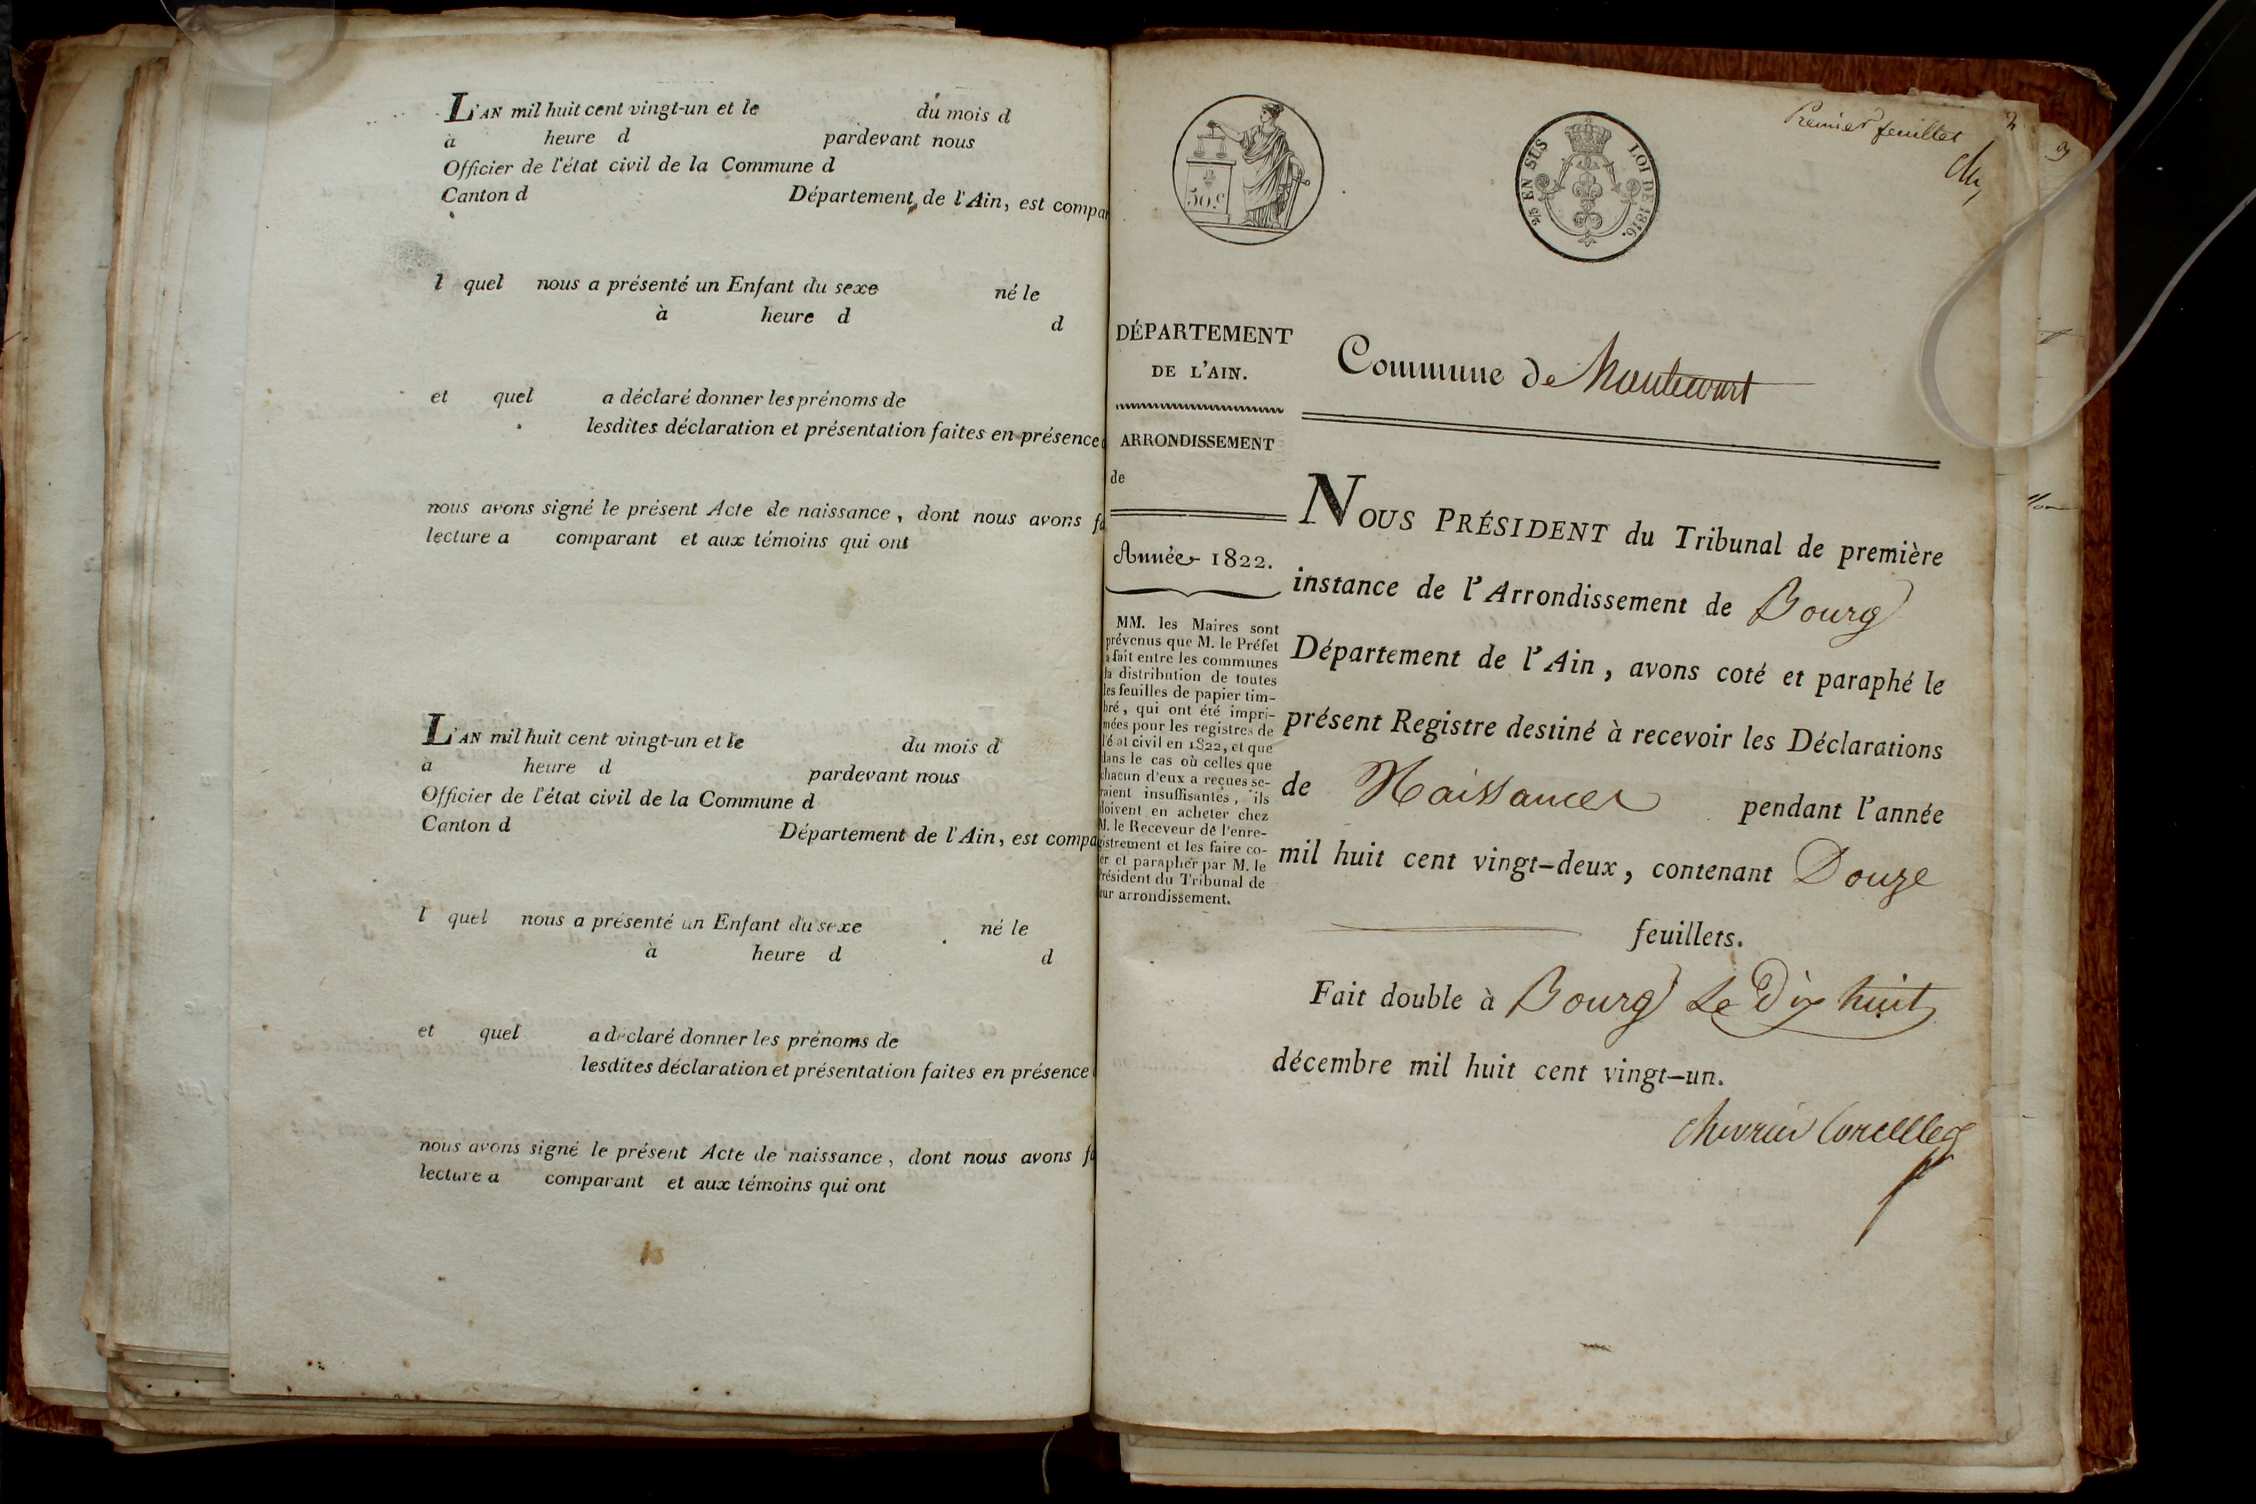 L'AN mil huit cent vingt-un et le du mois d
à heure d pardevant nous
Officier de l'état civil de la Commune d
Canton d Département de l'Ain, est compar
l quel nous a présenté un Enfant du sexe né le
à heure d d
et quel a déclaré donner les prénoms de
lesdites déclaration et présentation faites en présence
nous avons signé le présent Acte de naissance, dont nous avons fa
lecture a comparant et aux témoins qui ont
L'AN mil huit cent vingt-un et le du mois d
à heure d pardevant nous
Officier de l'état civil de la Commune d
Canton d Département de l'Ain, est compa
l quel nous a présenté un Enfant du sexe né le
à heure d d
et quel a déclaré donner les prénoms de
lesdites déclaration et présentation faites en présence
nous avons signé le présent Acte de naissance, dont nous avons fa
lecture a comparant et aux témoins qui ont
Premier feuillet
50.c
25 EN SUS LOI DE 1816.
DÉPARTEMENT
DE L'AIN.
ARRONDISSEMENT
de
Année 1822.
MM. les Maires sont
prévenus que M. le Préfet
a fait entre les communes
la distribution de toutes
les feuilles de papier tim-
bré, qui ont été impri-
mées pour les registres de
l'état civil en 1822, et que
dans le cas où celles que
chacun d'eux a reçues se-
raient insuffisantes, ils
doivent en acheter chez
M. le Receveur de l'enre-
gistrement et les faire co-
er et parapher par M. le
Président du Tribunal de
eur arrondissement.
Commune de
NOUS PRÉSIDENT du Tribunal de première
instance de l'Arrondissement de Bourg
Département de l'Ain, avons coté et paraphé le
présent Registre destiné à recevoir les Déclarations
de Naissances pendant l'année
mil huit cent vingt-deux, contenant Douze
feuillets.
Fait double à Bourg Le Dix huit
décembre mil huit cent vingt-un.
Chevrier Corcelles